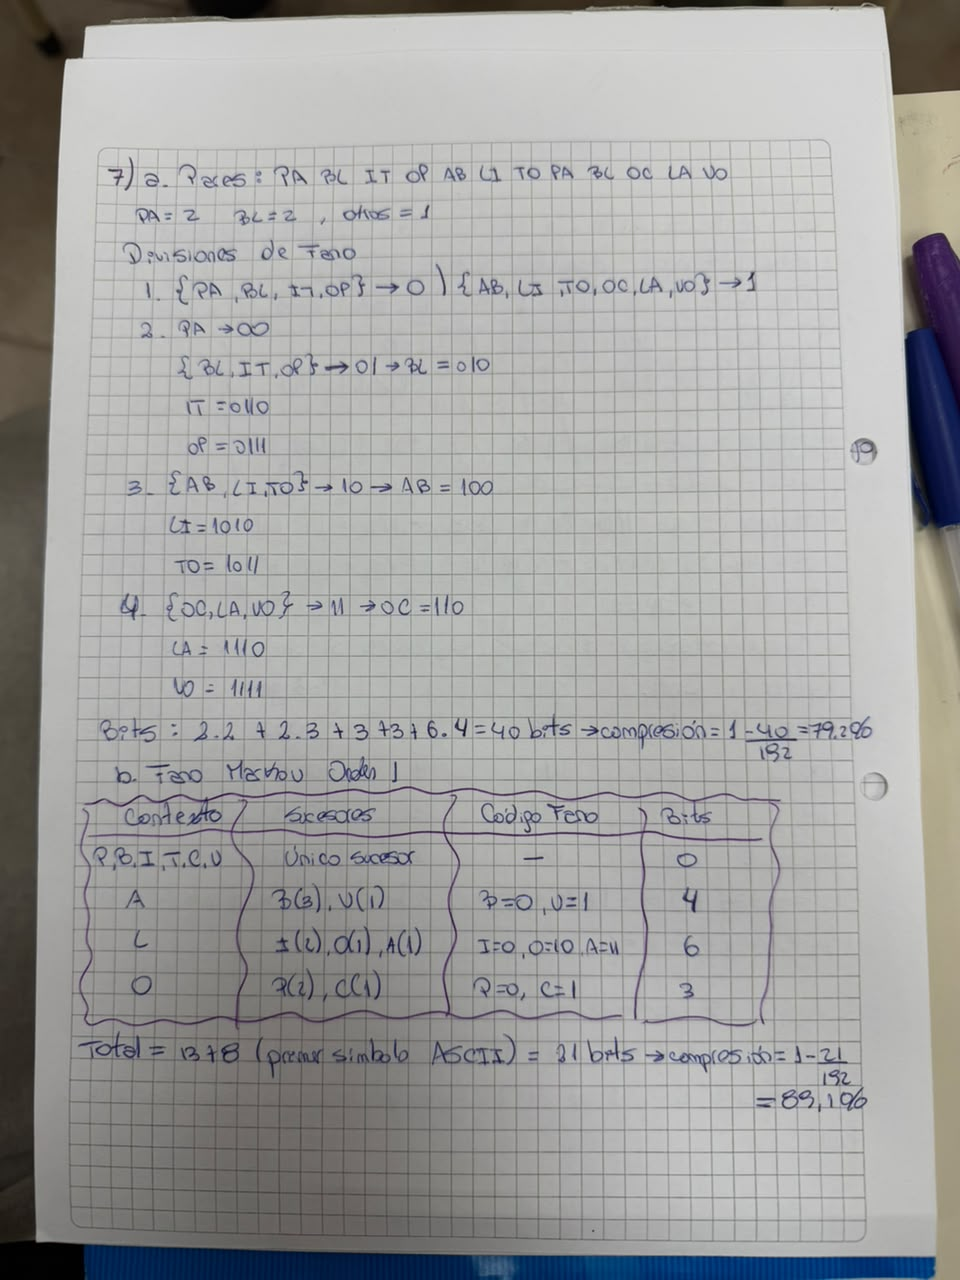 7) a. Pares: PA BL IT OP AB LI TO PA BL OC LA VO
PA = 2 BL = 2 , otros = 1
Divisiones de Fano
1. {PA, BL, IT, OP} → 0 ) {AB, LI, TO, OC, LA, VO} → 1
2. PA → 00
{BL, IT, OP} → 01 → BL = 010
IT = 0110
OP = 0111
3. {AB, LI, TO} → 10 → AB = 100
LI = 1010
TO = 1011
4. {OC, LA, VO} → 11 → OC = 110
LA = 1110
VO = 1111
Bits: 2.2 + 2.3 + 3 + 3 + 6.4 = 40 bits → compresión = 1 - 40/192 = 79.2%
b. Fano Markov Orden 1
Contexto Sucesores Código Fano Bits
P, B, I, T, C, V Único sucesor — 0
A B(3), V(1) B=0, V=1 4
L I(2), O(1), A(1) I=0, O=10, A=11 6
O P(2), C(1) P=0, C=1 3
Total = 13 + 8 (primer símbolo ASCII) = 21 bits → compresión = 1 - 21/192
= 89,1%
19